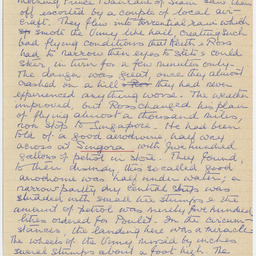 morning Prince Wairani of Siam saw them
off escorted by a couple of local air-
craft. They flew into torrential rain which
smote the Vimy like hail, creating such
bad flying conditions that Keith & Ross
had to narrow their eyes to slits & could
steer, in turn for a few minutes only.
The danger was great, once they almost
crashed on a hill & Ross they had never
experienced anything worse. The weather
improved, but Ross changed his plan
of flying almost a thousand miles,
non stop to Singapore. He had been
told of a good aerodrome half way
across at Singora with five hundred
gallons of petrol in store. They found,
to their dismay, this so called good
aerodrome was half under water; a
narrow partly dry central strip was
studded with small tree stumps & the
amount of petrol was merely five hundred
litres ordered for Poulet. In the circum-
stances, the landing here was a miracle
the wheels of the Vimy missed by inches
small stumps about a foot high. The